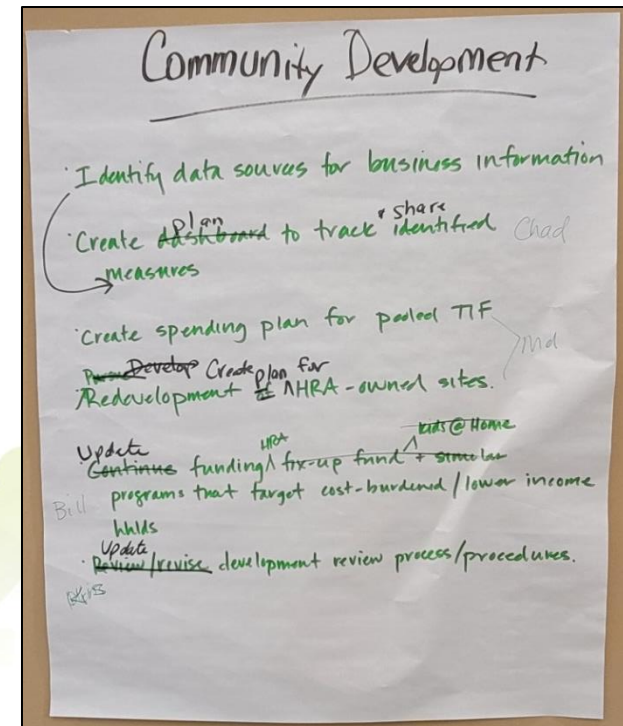 Community Development
· Identify data sources for business information
plan & share
· Create dashboard to track identified Chad
measures
· Create spending plan for pooled TIF
Develop Create plan for
Redevelopment of HRA-owned sites.
Update HRA Kids @ Home
Continue funding fix-up fund + similar
programs that target cost-burdened/lower income
Bill
hhlds
Update
· Review/revise development review process/procedures.
Kris